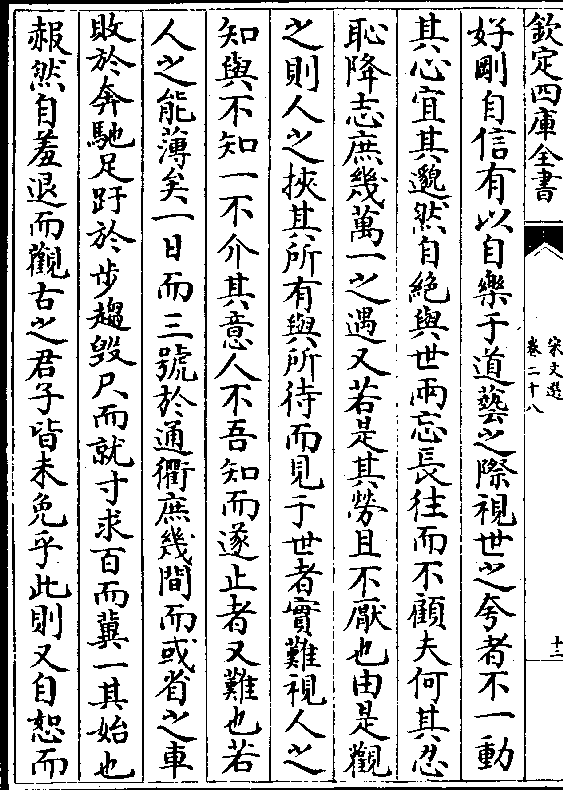 欽定四庫全書
宋文選
卷二十八
十二
好剛自信有以自樂于道藝之際視世之夸者不一動
其心宜其邈然自絶與世兩忘長往而不顧夫何其忍
恥降志庶幾萬一之遇又若是其勞且不厭也由是觀
之則人之挾其所有與所待而見于世者實難視人之
知與不知一不介其意人不吾知而遂止者又難也若
人之能薄矣一日而三號於通衢庶幾間而或省之車
敗於奔馳足趶於步趨毁尺而就寸求百而冀一其始也
赧然自羞退而觀古之君子皆未免乎此則又自恕而